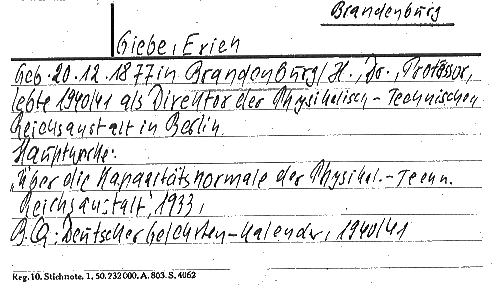 Brandenburg
Giebe, Erich
Geb. 20.12.1877 in Brandenburg/H., Dr., Professor,
lebte 1940/41 als Direktor der Physikalisch-Technischen
Reichsanstalt in Berlin
Hauptwerke:
„Über die Kapazitätsnormale der Physikal.-Techn.
Reichsanstalt", 1933,
B.Q.: Deutscher Gelehrten-Kalender, 1940/41
Reg. 10. Stichnote. 1, 50. 232 000. A. 803. S. 4062